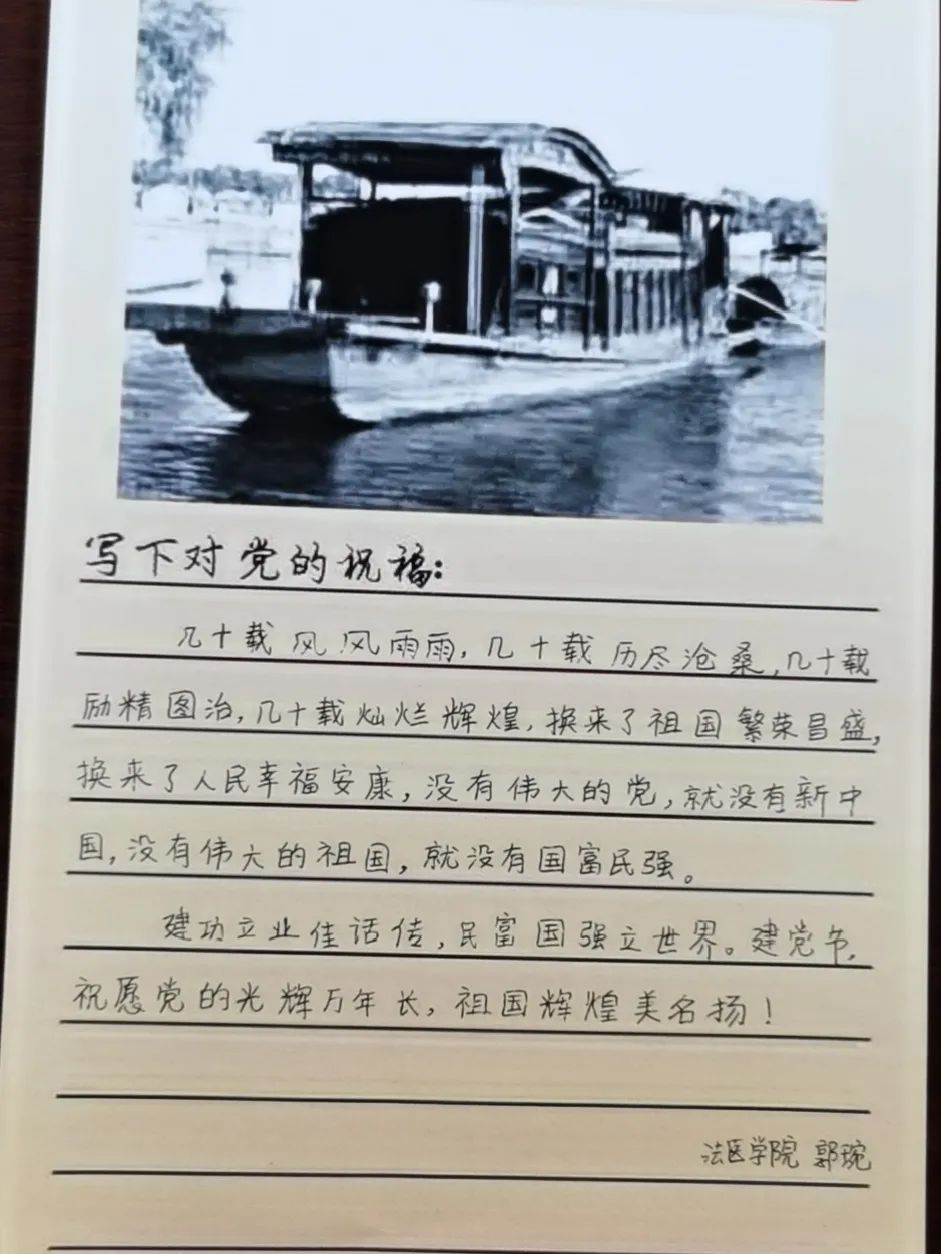 写下对党的祝福:
几十载风风雨雨,几十载历尽沧桑,几十载
励精图治,几十载灿烂辉煌,换来了祖国繁荣昌盛,
换来了人民幸福安康,没有伟大的党,就没有新中
国,没有伟大的祖国,就没有国富民强。
建功立业佳话传,民富国强立世界。建党节,
祝愿党的光辉万年长,祖国辉煌美名扬!
法医学院 郭琬